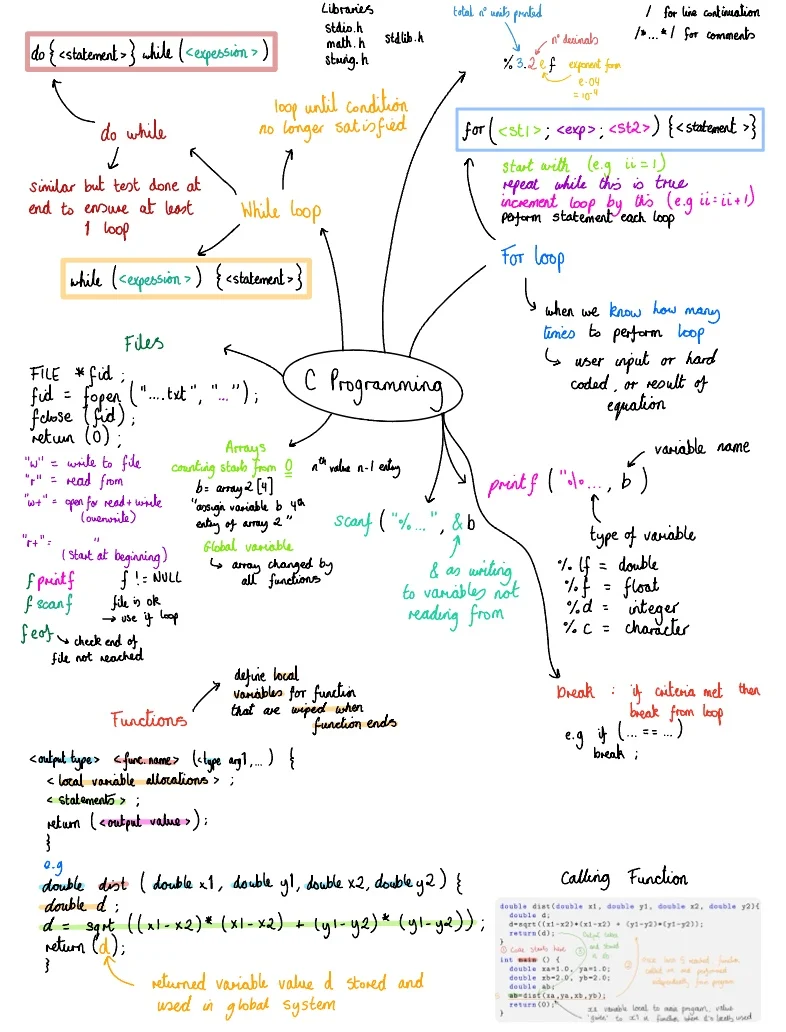 Libraries
stdio.h
math.h
string.h
stdlib.h
total n° units printed
n° decimals
%3.2ef
exponent form
e-04
=10⁻⁴
/ for line continuation
/*...*/ for comments
do {<statement>} while (<expession>)
do while
similar but test done at
end to ensure at least
1 loop
loop until condition
no longer satisfied
While loop
while (<expession>) {<statement>}
for (<st1>; <exp>; <st2>) {<statement>}
start with (e.g ii=1)
repeat while this is true
increment loop by this (e.g ii=ii+1)
perform statement each loop
For loop
when we know how many
times to perform loop
user input or hard
coded, or result of
equation
C Programming
Files
FILE *fid;
fid = fopen ("....txt", "...");
fclose (fid);
return (0);
"w" = write to file
"r" = read from
"w+" = open for read + write
(overwrite)
"r+" = "
(start at beginning)
fprintf
fscanf
f != NULL
file is ok
→ use if loop
feof
check end of
file not reached
Arrays
counting starts from 0
nth value n-1 entry
b = array2 [4]
"assign variable b 4th
entry of array 2"
Global variable
array changed by
all functions
scanf ("%...", &b
& as writing
to variables not
reading from
variable name
printf ("%..., b)
type of variable
%lf = double
%f = float
%d = integer
%c = character
break : if criteria met then
break from loop
e.g if (... == ...)
break ;
Functions
define local
variables for function
that are wiped when
function ends
<output type> <func.name> (<type arg1,...) {
<local variable allocations> ;
<statements> ;
return (<output value>);
}
e.g
double dist (double x1, double y1, double x2, double y2) {
double d ;
d = sqrt ((x1-x2)*(x1-x2) + (y1-y2)*(y1-y2)) ;
return (d);
}
returned variable value d stored and
used in global system
Calling Function
double dist(double x1, double y1, double x2, double y2){
double d;
d=sqrt((x1-x2)*(x1-x2) + (y1-y2)*(y1-y2));
return(d);
}
① Code starts here
Output taken
and stored
in ab
③
②
once line 5 reached function
called on and performed
independently from program
int main () {
double xa=1.0, ya=1.0;
double xb=2.0, yb=2.0;
double ab;
5
ab=dist(xa,ya,xb,yb);
return(0);
}
xa variable local to main program, value
"given" to x1 in function when it's locally used